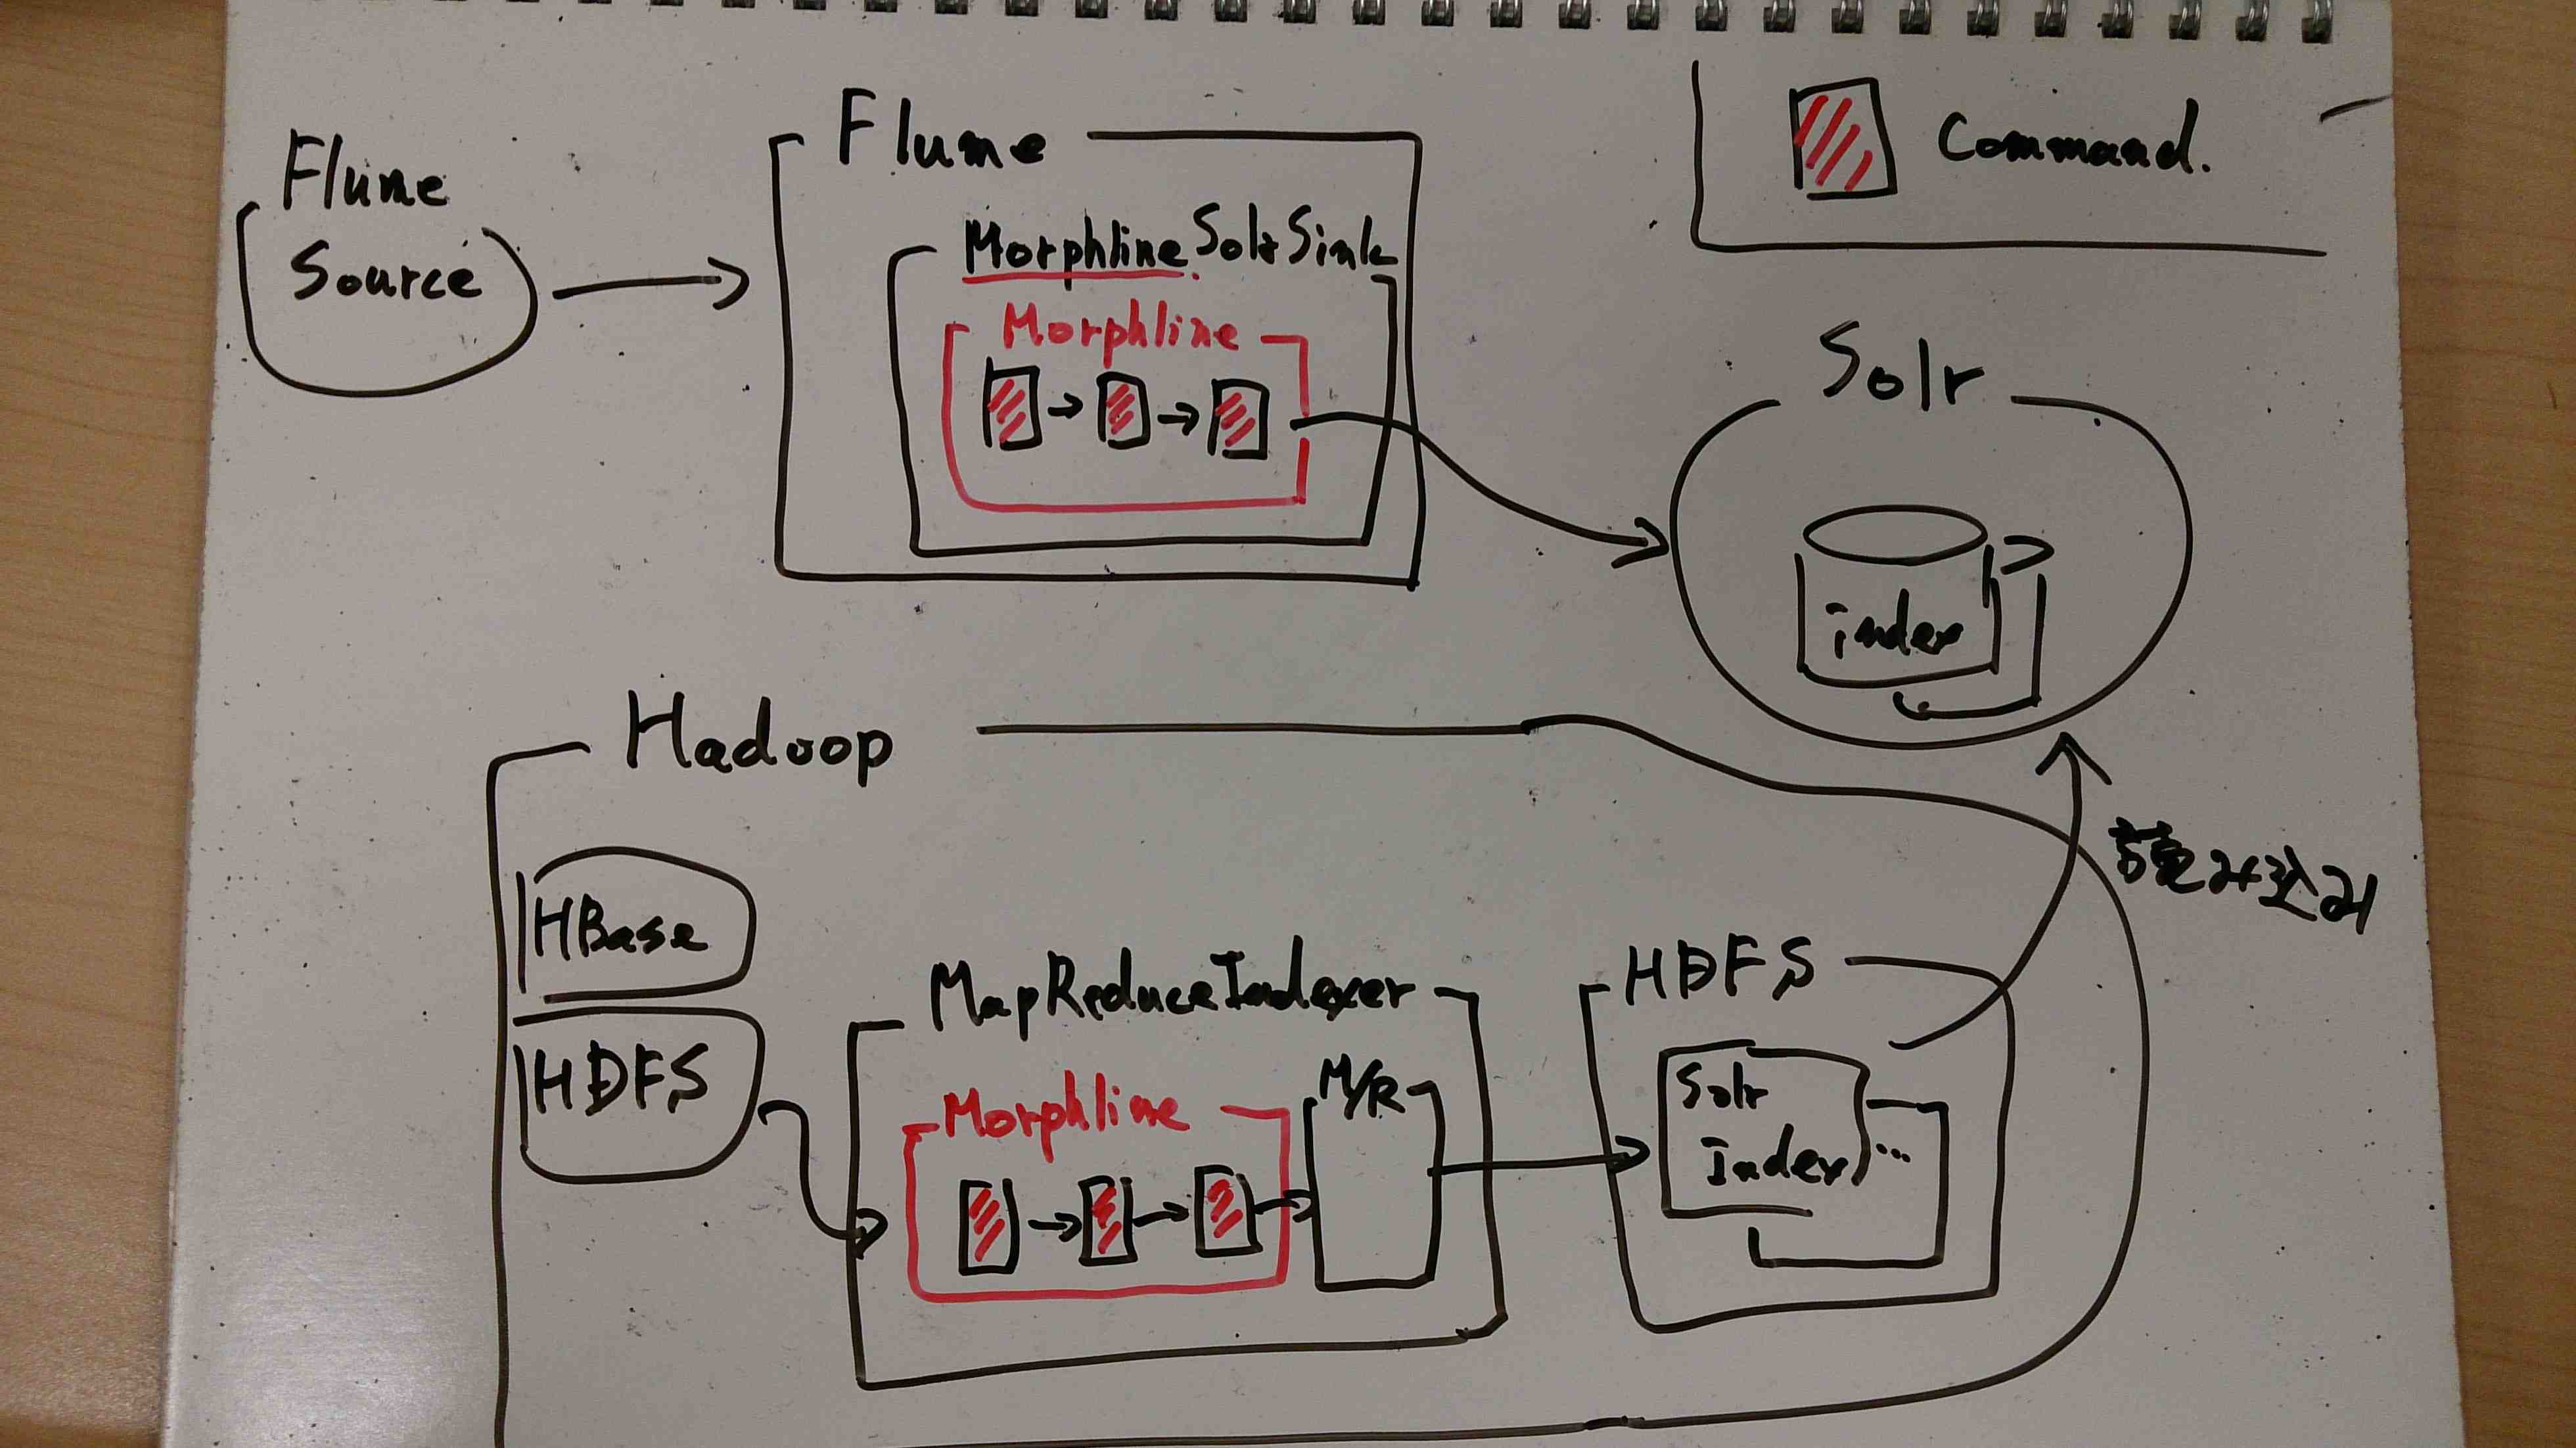 Flume
Source
Flume
MorphlineSolrSink
Morphline
Command.
Solr
index
Hadoop
HBase
HDFS
MapReduceIndexer
Morphline
M/R
HDFS
Solr
Index
...